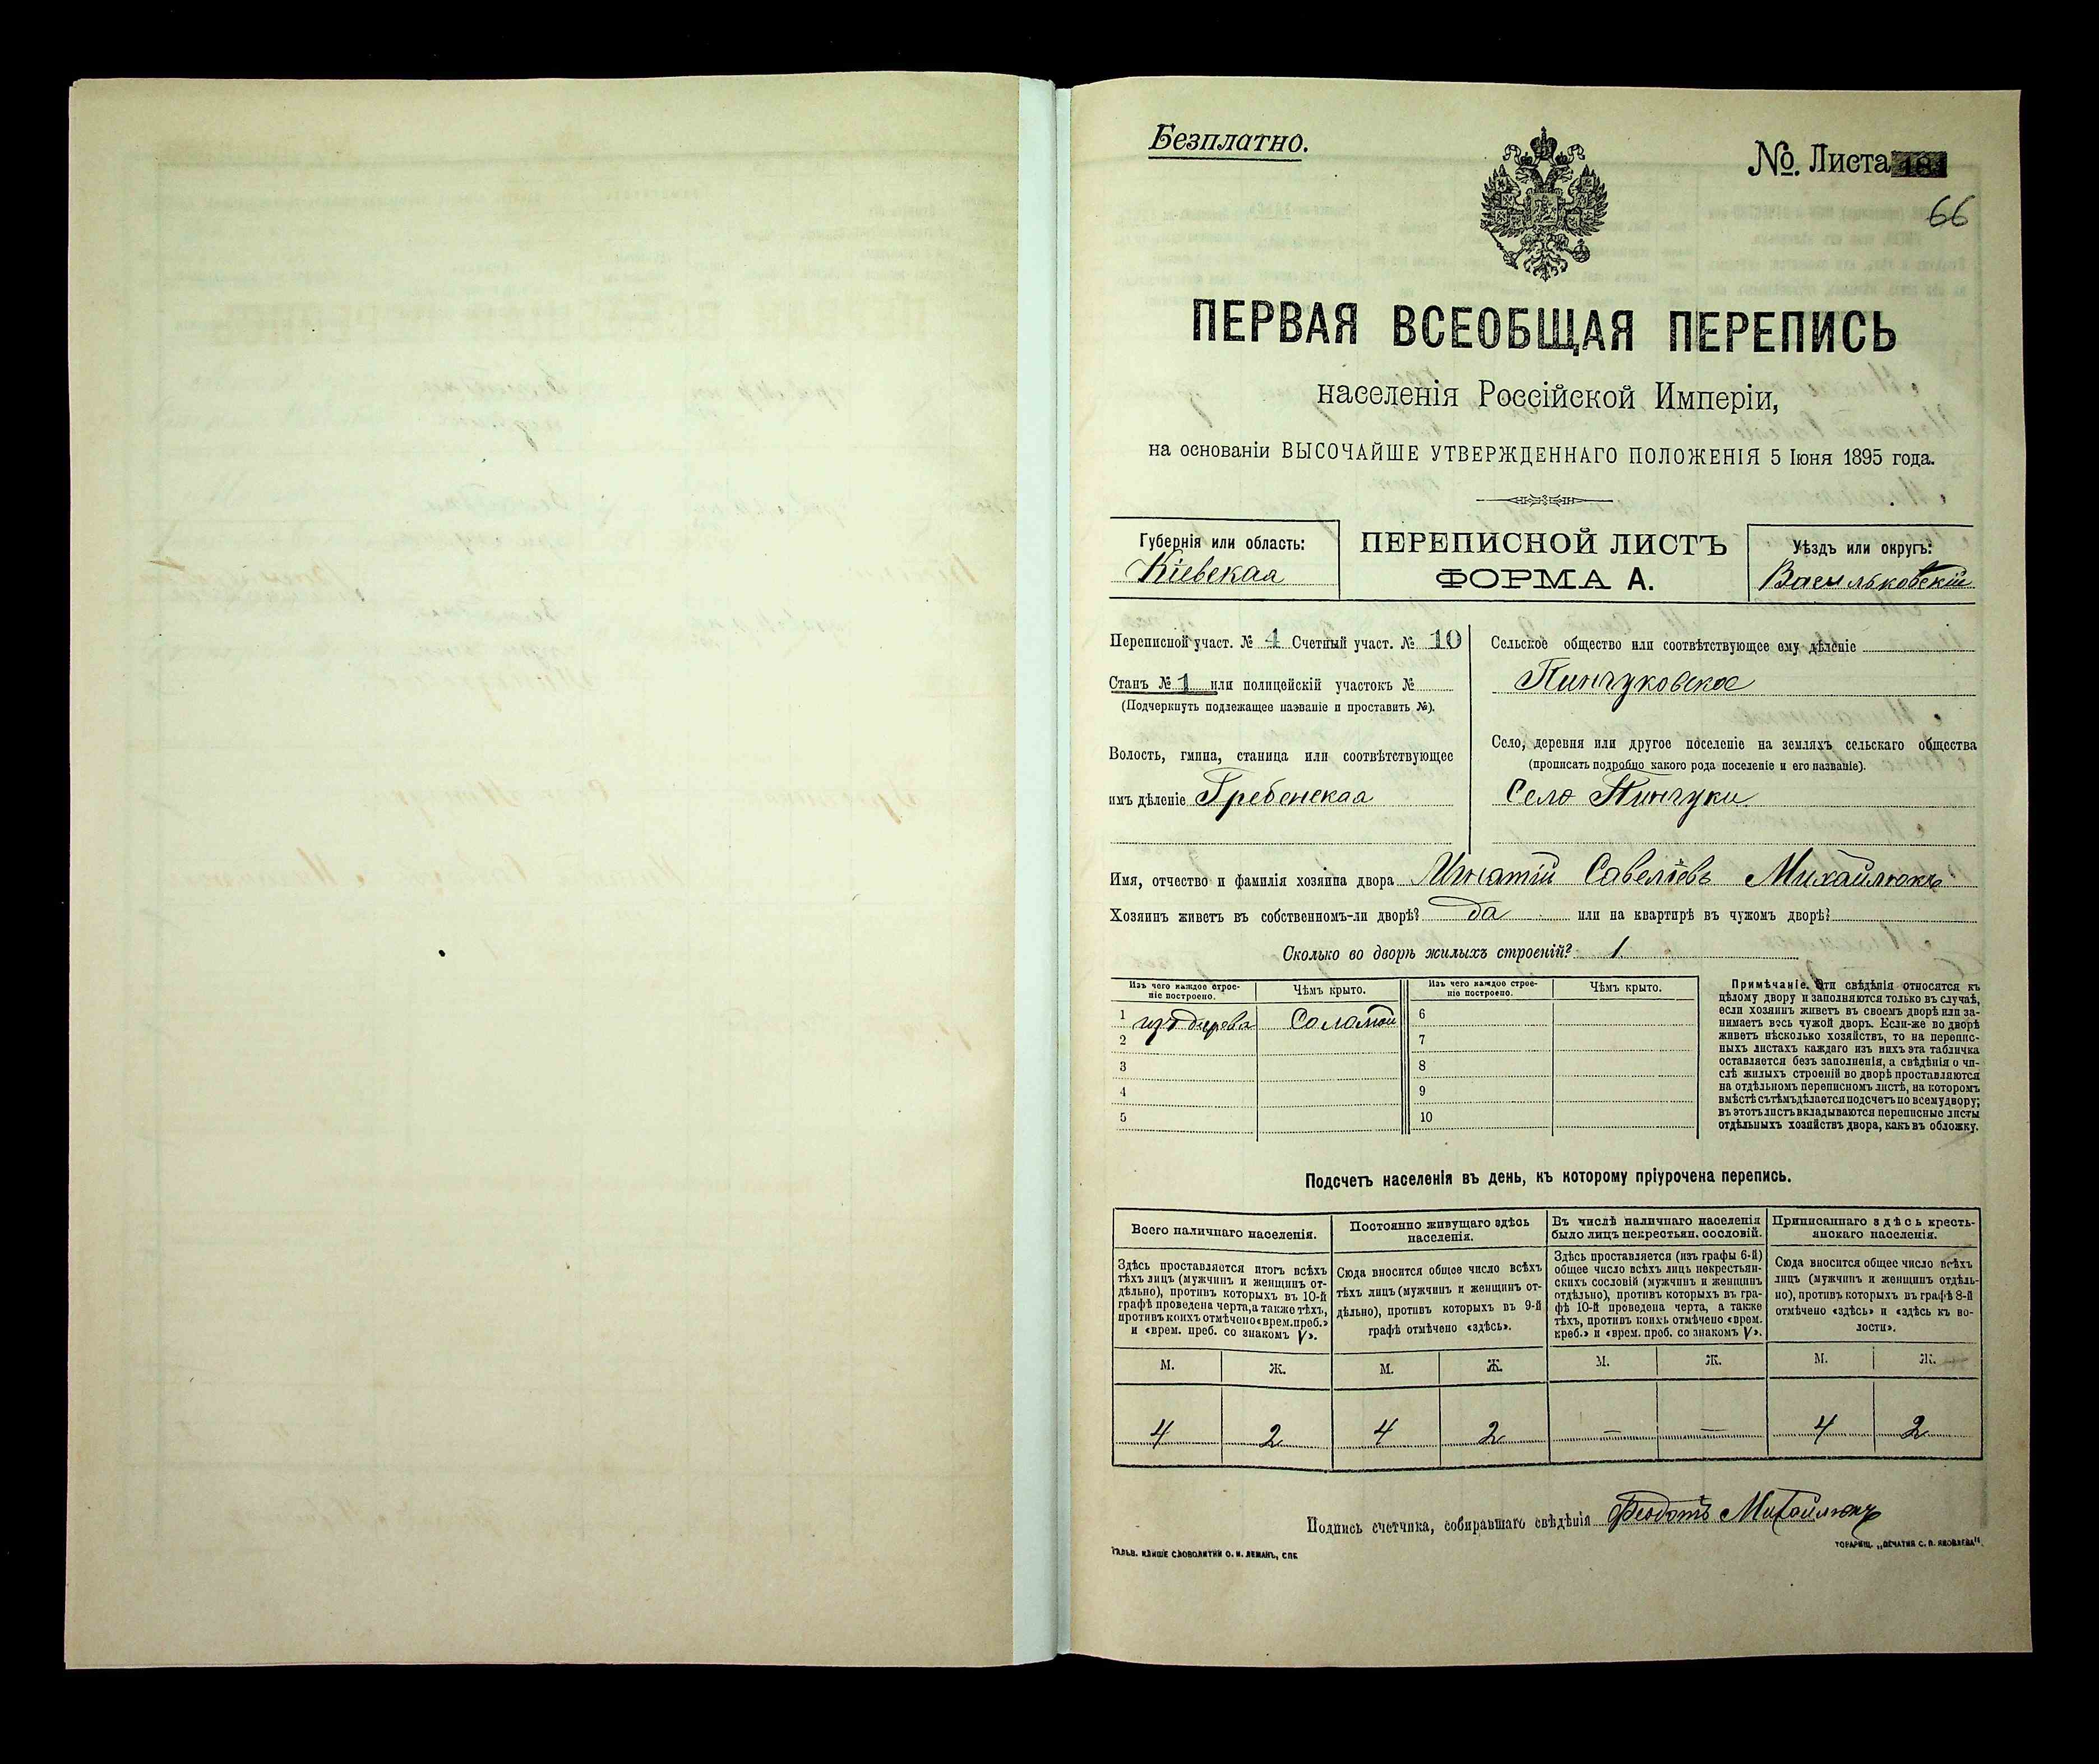 Безплатно.
№. Листа
66
ПЕРВАЯ ВСЕОБЩАЯ ПЕРЕПИСЬ
населенія Россійской Имперіи,
на основаніи ВЫСОЧАЙШЕ УТВЕРЖДЕННАГО ПОЛОЖЕНІЯ 5 Іюня 1895 года.
Губернія или область:
Кіевская
ПЕРЕПИСНОЙ ЛИСТЪ
ФОРМА А.
Уѣздъ или округъ:
Васильковскій
Переписной участ. № 4 Счетный участ. № 10
Станъ № 1 или полицейскій участокъ №
(Подчеркнуть подлежащее названіе и проставить №).
Волость, гмина, станица или соотвѣтствующее
имъ дѣленіе Гребенская
Сельское общество или соотвѣтствующее ему дѣленіе
Пинчуковское
Село, деревня или другое поселеніе на земляхъ сельскаго общества
(прописать подробно какого рода поселеніе и его названіе).
Село Пинчуки
Имя, отчество и фамилія хозяина двора Игнатій Савеліевъ Михайлюкъ
Хозяинъ живетъ въ собственномъ-ли дворѣ? да или на квартирѣ въ чужомъ дворѣ?
Сколько во дворѣ жилыхъ строеній? 1
Изъ чего каждое строе-
ніе построено.
Чѣмъ крыто.
1 изъ дерева Соломой
2
3
4
5
Изъ чего каждое строе-
ніе построено.
Чѣмъ крыто.
6
7
8
9
10
Примѣчаніе. Эти свѣдѣнія относятся къ
цѣлому двору и заполняются только въ случаѣ,
если хозяинъ живетъ въ своемъ дворѣ или за-
нимаетъ весь чужой дворъ. Если-же во дворѣ
живетъ нѣсколько хозяйствъ, то на перепис-
ныхъ листахъ каждаго изъ нихъ эта табличка
оставляется безъ заполненія, а свѣдѣнія о чи-
слѣ жилыхъ строеній во дворѣ проставляются
на отдѣльномъ переписномъ листѣ, на которомъ
вмѣстѣ съ тѣмъ дѣлается подсчетъ по всему двору;
въ этотъ листъ вкладываются переписные листы
отдѣльныхъ хозяйствъ двора, какъ въ обложку.
Подсчетъ населенія въ день, къ которому пріурочена перепись.
Всего наличнаго населенія.
Здѣсь проставляется итогъ всѣхъ
тѣхъ лицъ (мужчинъ и женщинъ от-
дѣльно), противъ которыхъ въ 10-й
графѣ проведена черта, а также тѣхъ,
противъ коихъ отмѣчено «врем. преб.»
и «врем. преб. со знакомъ V».
М. Ж.
4 2
Постоянно живущаго здѣсь
населенія.
Сюда вносится общее число всѣхъ
тѣхъ лицъ (мужчинъ и женщинъ от-
дѣльно), противъ которыхъ въ 9-й
графѣ отмѣчено «здѣсь».
М. Ж.
4 2
Въ числѣ наличнаго населенія
было лицъ некрестьян. сословій.
Здѣсь проставляется (изъ графы 6-й)
общее число всѣхъ лицъ некрестьян-
скихъ сословій (мужчинъ и женщинъ
отдѣльно), противъ которыхъ въ гра-
фѣ 10-й проведена черта, а также
тѣхъ, противъ коихъ отмѣчено «врем.
преб.» и «врем. преб. со знакомъ V».
М. Ж.
— —
Приписаннаго здѣсь кресть-
янскаго населенія.
Сюда вносится общее число всѣхъ
лицъ (мужчинъ и женщинъ отдѣль-
но), противъ которыхъ въ графѣ 8-й
отмѣчено «здѣсь» и «здѣсь къ во-
лости».
М. Ж.
4 2
Подпись счетчика, собиравшаго свѣдѣнія Феодотъ Михайлюкъ
ГАЛЬВ. КЛИШЕ СЛОВОЛИТНИ О. И. ЛЕМАНЪ, СПБ
ТОВАРИЩ. „ПЕЧАТНЯ С. П. ЯКОВЛЕВА".